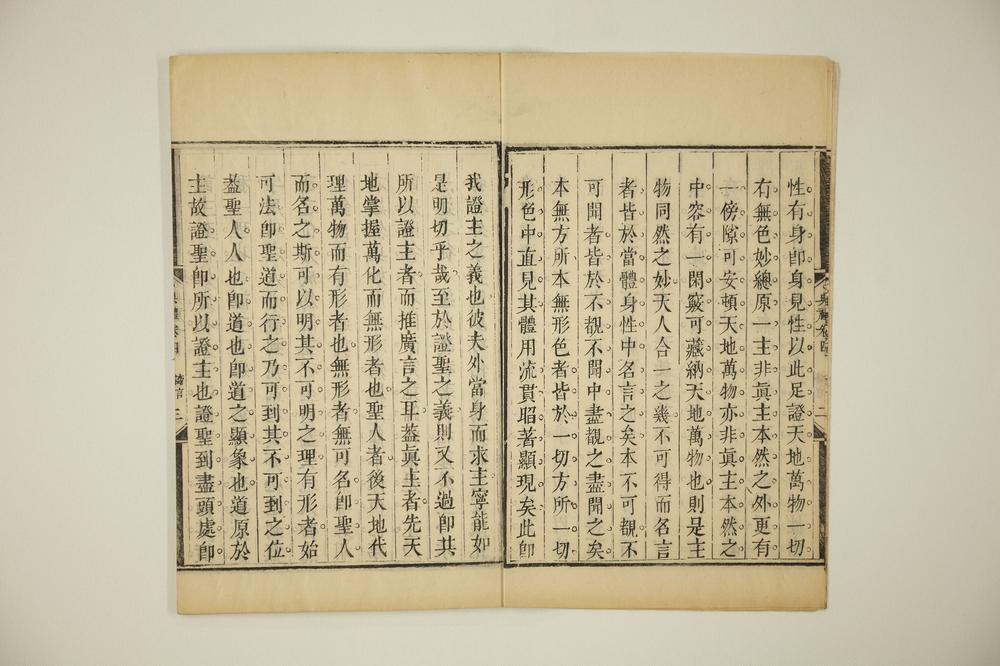 性有身卽身見性以此足證天地萬物一切
有無色妙總原一主非眞主本然之外更有
一傍隙可安頓天地萬物亦非眞主本然之
中容有一閑竅可藏納天地萬物也則是主
物同然之妙天人合一之幾不可得而名言
者皆於當體身性中名言之矣本不可覩不
可聞者皆於不覩不聞中盡覩之盡聞之矣
本無方所本無形色者皆於一切方所一切
形色中直見其體用流貫昭著顯現矣此卽
二
我證主之義也彼夫外當身而求主寧能如
是明切乎哉至於證聖之義則又不過卽其
所以證主者而推廣言之耳葢眞主者先天
地掌握萬化而無形者也聖人者後天地代
理萬物而有形者也無形者無可名卽聖人
而名之斯可以明其不可明之理有形者始
可法卽聖道而行之乃可到其不可到之位
葢聖人人也卽道也卽道之顯象也道原於
主故證聖卽所以證主也證聖到盡頭處卽
三